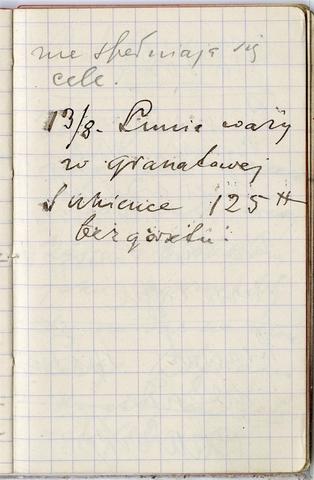 nie spełniają się
cele.
13/8. Lunia waży
w granatowej
sukience 125 ℔
bez gorsetu.